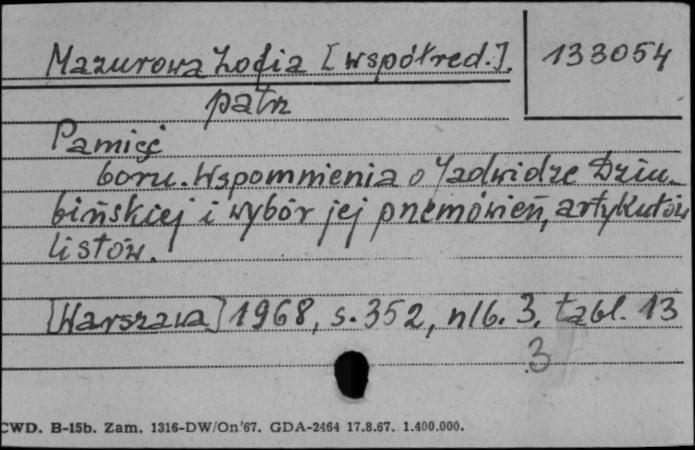 Mazurowa Zofia [współred.]. 133054
patrz
Pamięć
boru. Wspomnienia o Jadwidze Dziu-
bińskiej i wybór jej przemówień, artykułów
listów.
[Warszawa] 1968, s. 352, nlb. 3, tabl. 13
3
CWD. B-15b. Zam. 1316-DW/On'67. GDA-2464 17.8.67. 1.400.000.